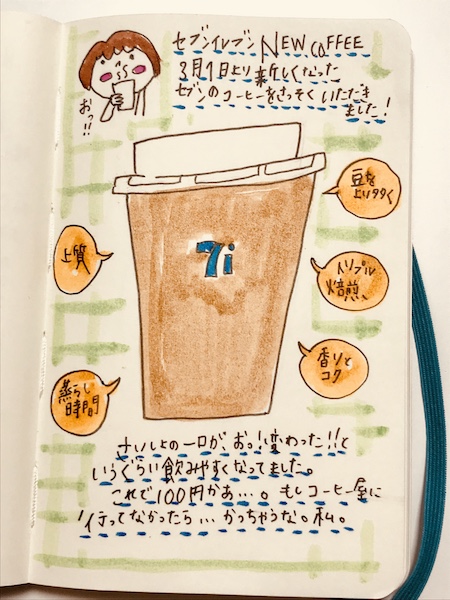 セブンイレブン NEW COFFEE
3月1日より新しくなった
セブンのコーヒーをさっそくいただき
ました!
おっ!!
豆を
より多く
7i
上質
トリプル
焙煎
香りと
コク
蒸らし
時間
さいしょの一口がお。!変わった!!と
いうぐらい飲みやすくなってました。
これで100円かぁ…。もしコーヒー屋に
行ってなかったら…かっちゃうな。私。